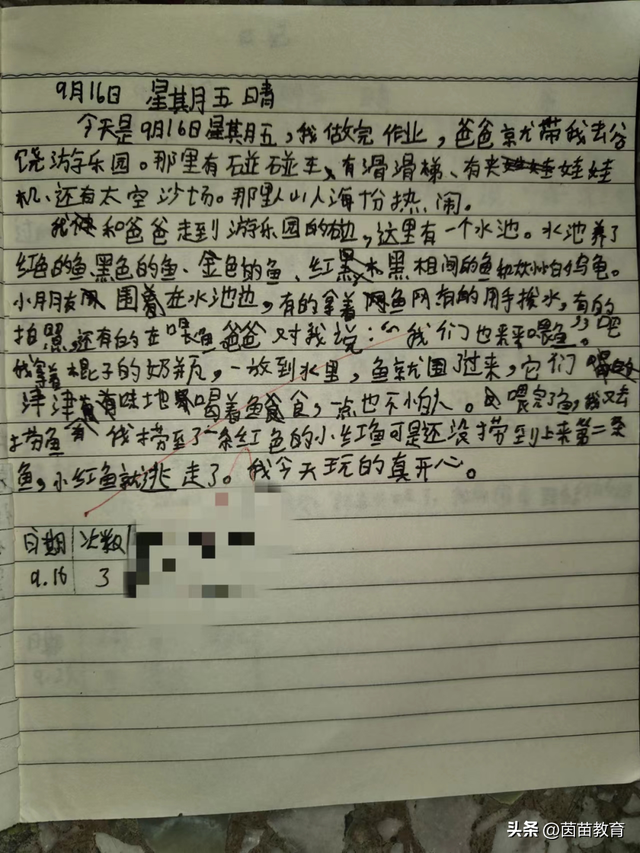 9月16日 星期五 晴
今天是9月16日星期五,我做完作业,爸爸就带我去谷
饶游乐园。那里有碰碰车、有滑滑梯、有夹娃娃
机、还有太空沙场。那里人山人海份热闹。
我和爸爸走到游乐园的右边,这里有一个水池。水池养了
红色的鱼、黑色的鱼、金色的鱼、红黑相间的鱼和乌龟。
小朋友围着在水池边,有的拿着网鱼网有的用手拨水,有的
拍照,还有的在喂鱼爸爸对我说:“我们也来喂鱼”吧
我拿着棍子的奶瓶,一放到水里,鱼就围了过来,它们
津津有味地喝着鱼食,一点也不怕人。喂完了鱼,我又去
捞鱼 我捞到了一条红色的小红鱼可是还没捞到上来第二条
鱼,小红鱼就逃走了。我今天玩的真开心。
日期 次数
9.16 3
头条 @茵苗教育